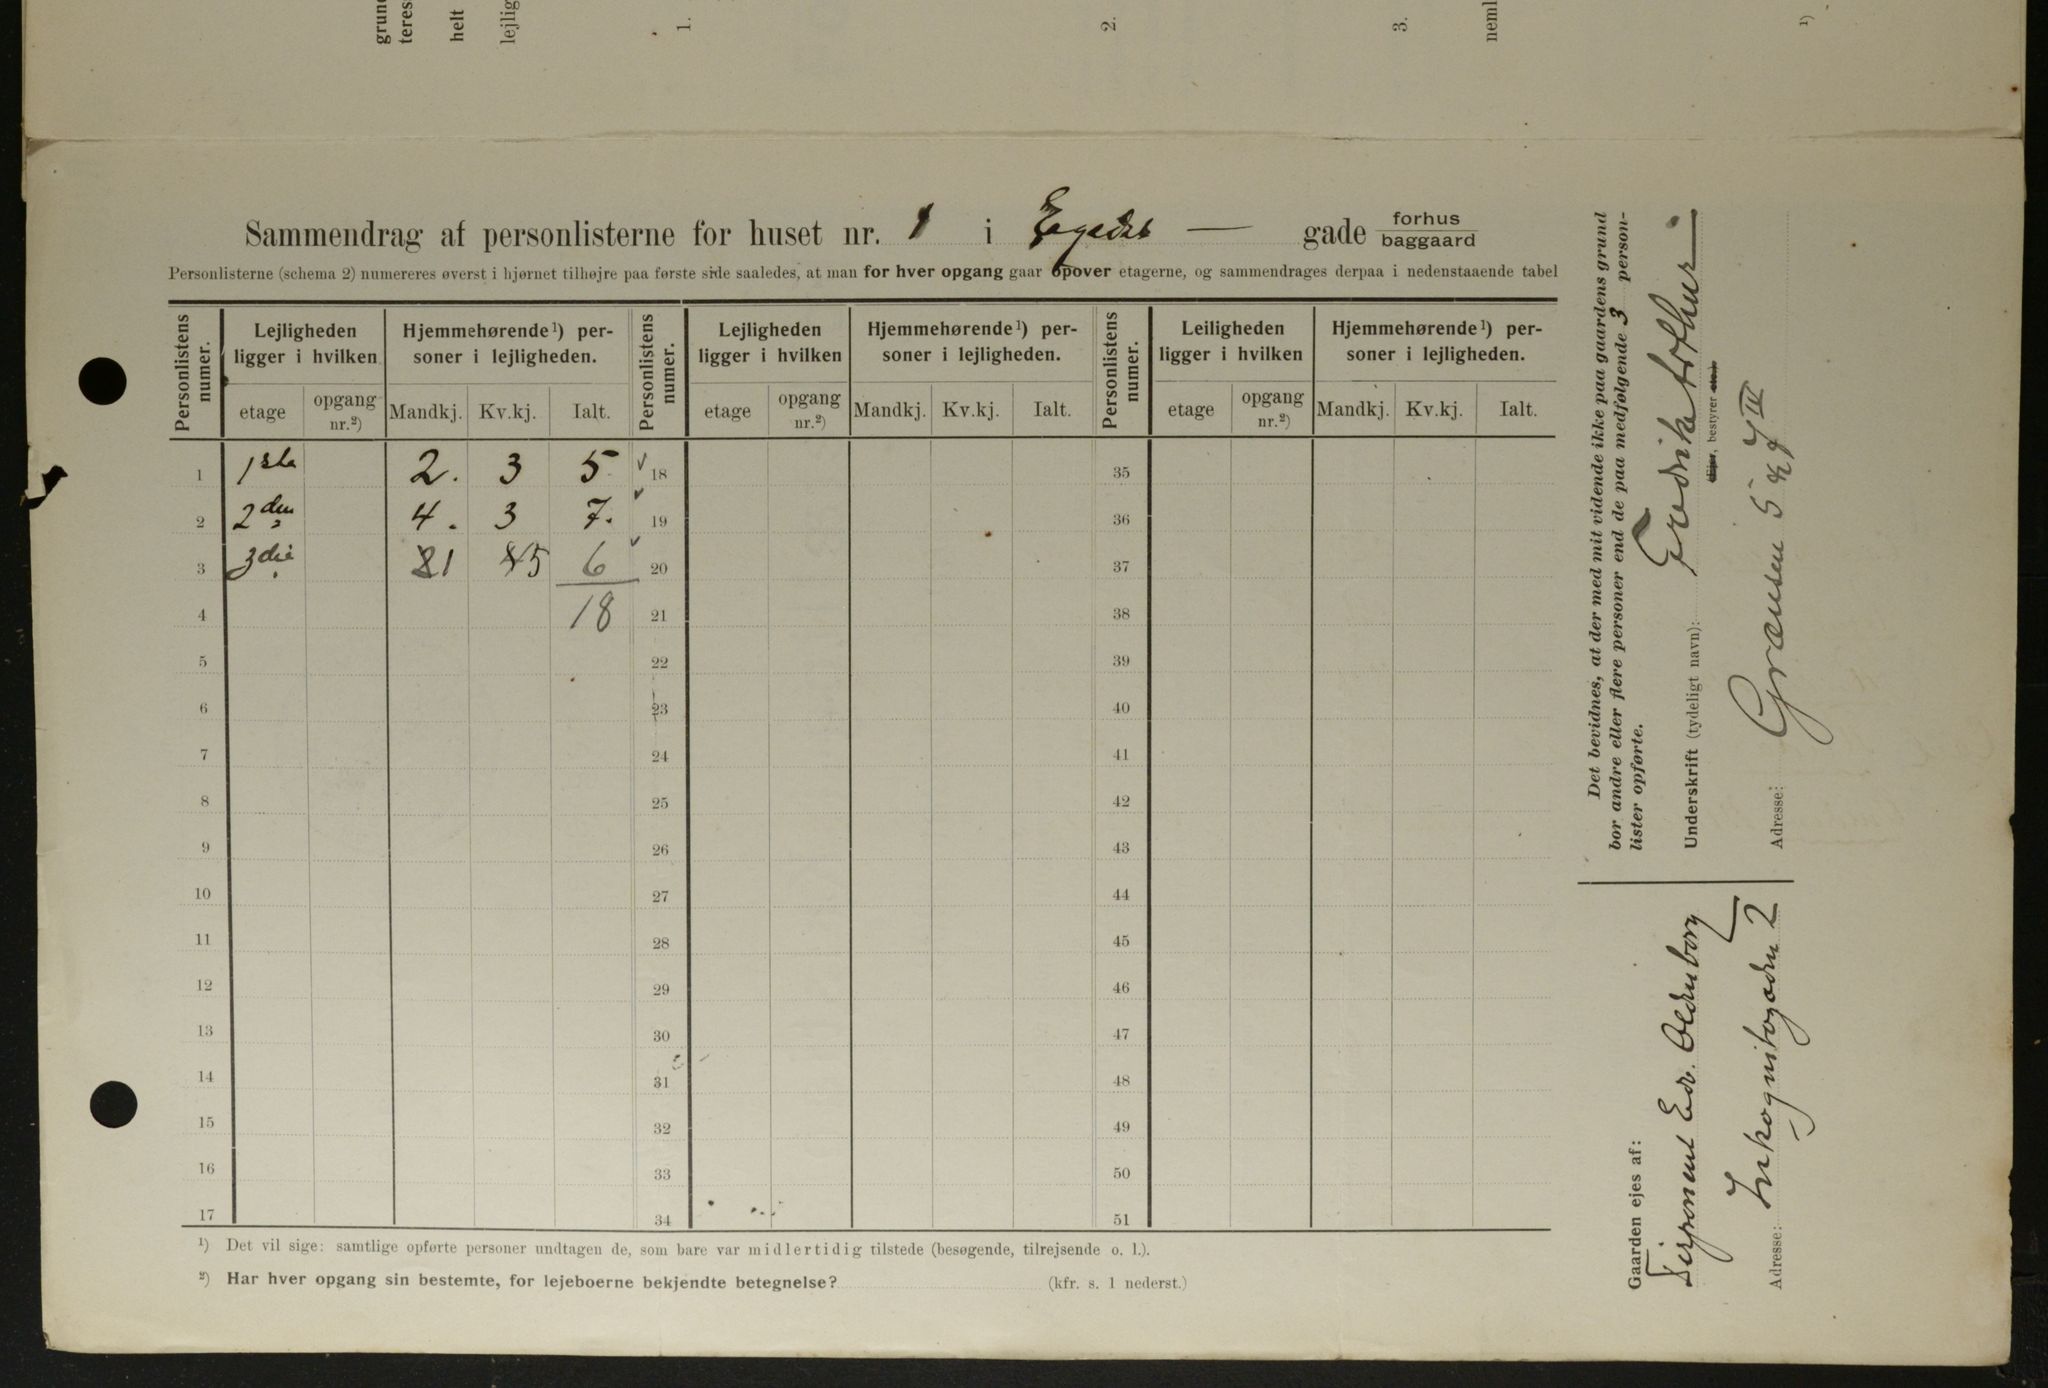 grun
teres
helt
lejlig
1.
2.
3.
neml
1)
Sammendrag af personlisterne for huset nr. 1 i Egedes — gade forhus
baggaard
Personlisterne (schema 2) numereres øverst i hjørnet tilhøjre paa første side saaledes, at man for hver opgang gaar opover etagerne, og sammendrages derpaa i nedenstaaende tabel
Personlistens numer. Lejligheden ligger i hvilken Hjemmehørende¹) personer i lejligheden. Personlistens numer. Lejligheden ligger i hvilken Hjemmehørende¹) per-soner i lejligheden. Personlistens numer. Leiligheden ligger i hvilken Hjemmehørende¹) per-soner i lejligheden.
etage opgang nr.²) Mandkj. Kv.kj. Ialt. etage opgang nr.²) Mandkj. Kv.kj. Ialt. etage opgang nr.²) Mandkj. Kv.kj. Ialt.
1 1ste 2. 3 5 18 35
2 2den 4. 3 7. 19 36
3 3die 1 5 6 20 37
4 18 21 38
5 22 39
6 23 40
7 24 41
8 25 42
9 26 43
10 27 44
11 28 45
12 29 46
13 30 47
14 31 48
15 32 49
16 33 50
17 34 51
¹) Det vil sige: samtlige opførte personer undtagen de, som bare var midlertidig tilstede (besøgende, tilrejsende o. l.).
²) Har hver opgang sin bestemte, for lejeboerne bekjendte betegnelse? (kfr. s. 1 nederst.)
Det bevidnes, at der med mit vidende ikke paa gaardens grund
bor andre eller flere personer end de paa medfølgende 3 person-
lister opførte.
Underskrift (tydeligt navn): Fredrik
Ejer, bestyrer etc.)
Adresse: Grænsen 5 IV
Gaarden ejes af:
Ed. Oldenborg
Adresse: Inkognitogaden 2